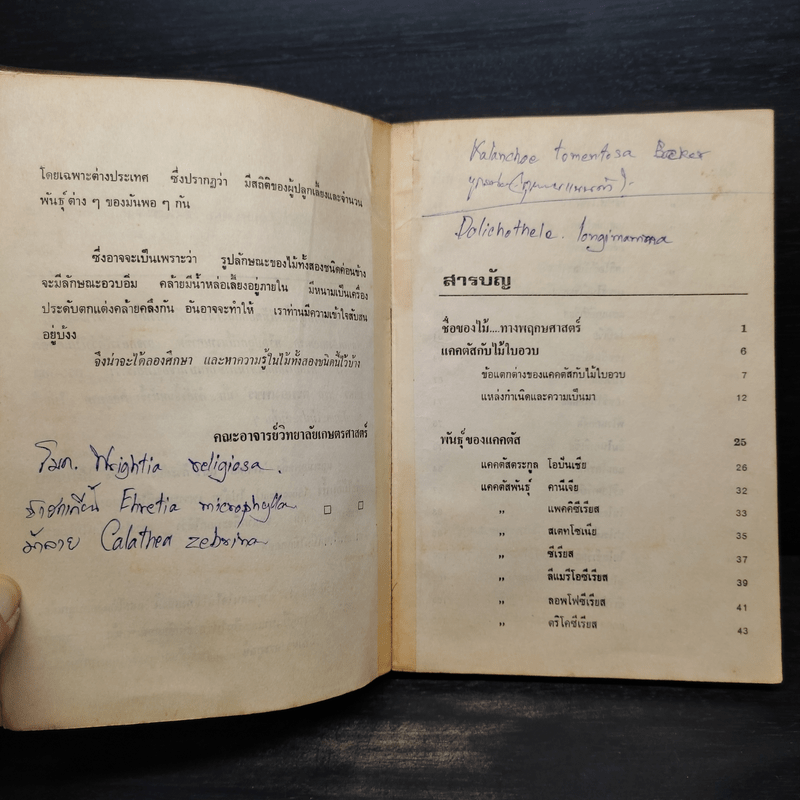 โดยเฉพาะต่างประเทศ ซึ่งปรากฏว่า มีสถิติของผู้ปลูกเลี้ยงและจำนวน
พันธุ์ต่าง ๆ ของมันพอ ๆ กัน
ซึ่งอาจจะเป็นเพราะว่า รูปลักษณะของไม้ทั้งสองชนิดค่อนข้าง
จะมีลักษณะอวบอิ่ม คล้ายมีน้ำหล่อเลี้ยงอยู่ภายใน มีหนามเป็นเครื่อง
ประดับตกแต่งคล้ายคลึงกัน อันอาจจะทำให้ เราท่านมีความเข้าใจสับสน
อยู่บ้าง
จึงน่าจะได้ลองศึกษา และหาความรู้ในไม้ทั้งสองชนิดนี้ไว้บ้าง
คณะอาจารย์วิทยาลัยเกษตรศาสตร์
โมก. Wrightia religiosa.
ชาฮกเกี้ยน Ehretia microphylla
ม้าลาย Calathea zebrina
Kalanchoe tomentosa Baker
Dolichothele. longimamma
สารบัญ
ชื่อของไม้....ทางพฤกษศาสตร์ 1
แคคตัสกับไม้ใบอวบ 6
ข้อแตกต่างของแคคตัสกับไม้ใบอวบ 7
แหล่งกำเนิดและความเป็นมา 12
พันธุ์ของแคคตัส 25
แคคตัสตระกูล โอปันเชีย 26
แคคตัสพันธุ์ คานีเจีย 32
,, แพคคิซีเรียส 33
,, สเตทโซเนีย 35
,, ซีเรียส 37
,, ลีแมรีโอซีเรียส 39
,, ลอพโฟซีเรียส 41
,, ตริโคซีเรียส 43